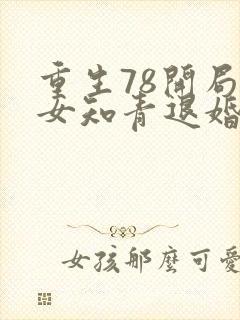 重生78開局
女知青退婚
女孩那麼可愛